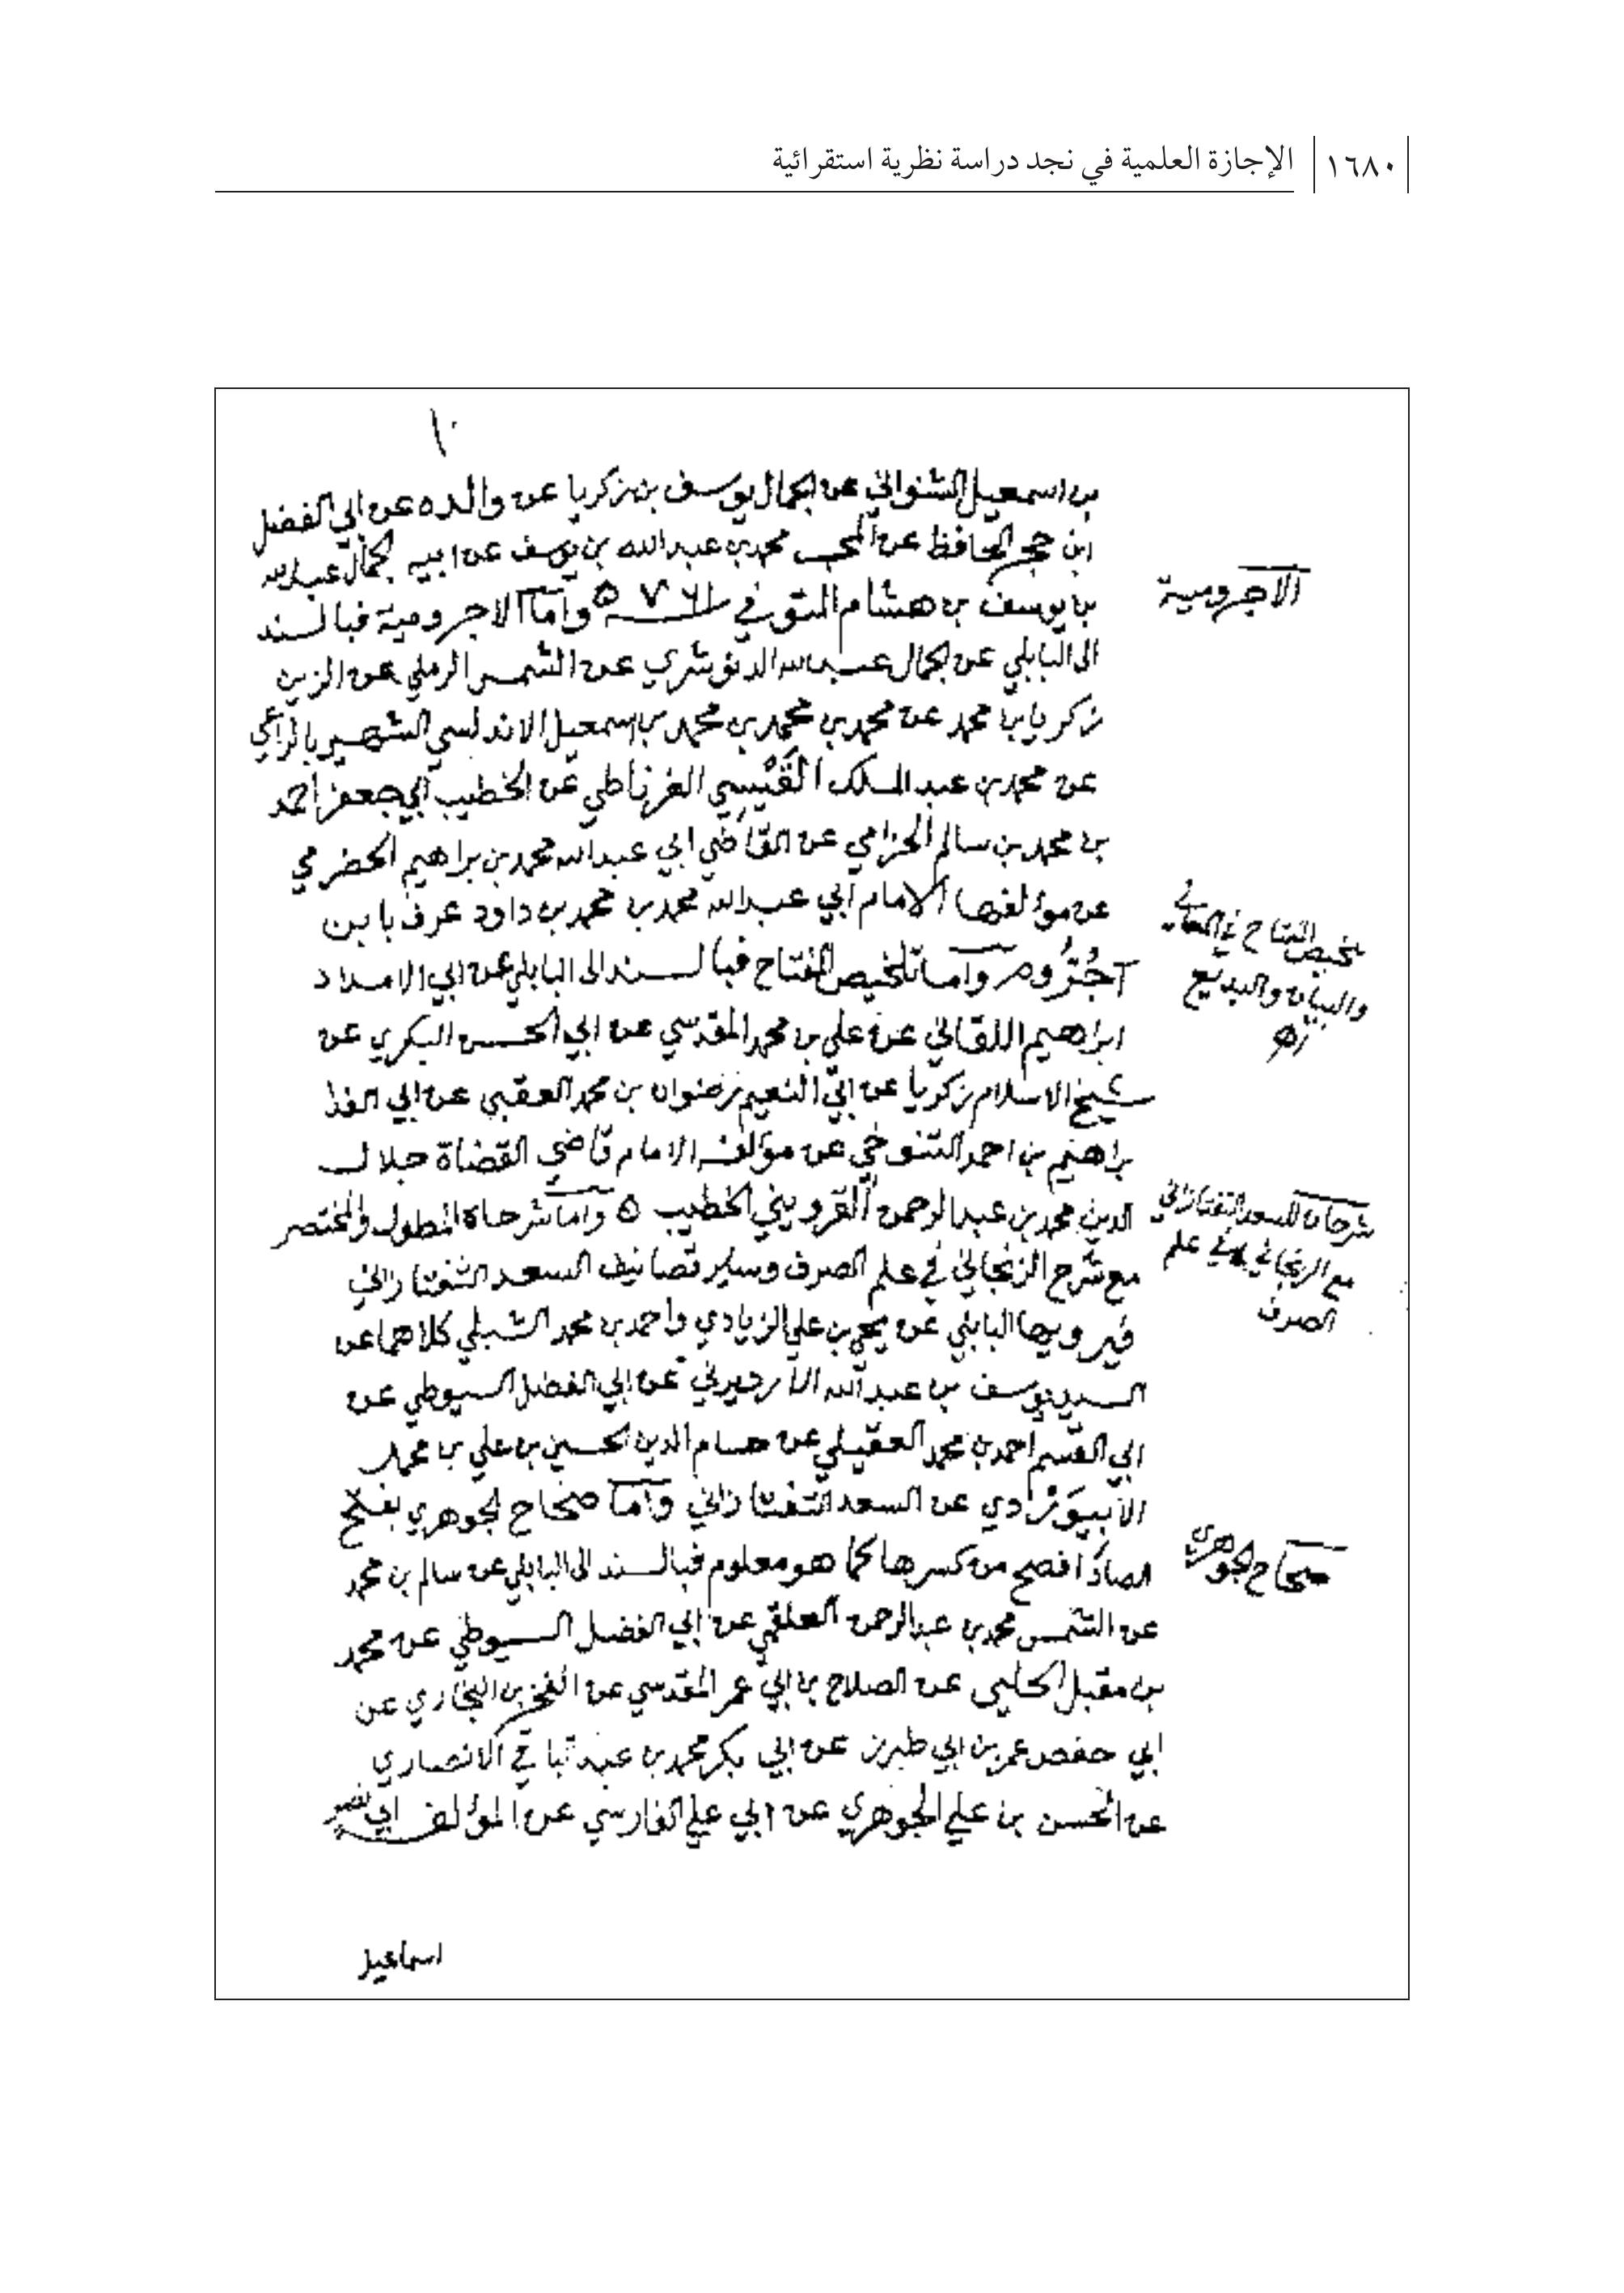 ١٦٨٠ الإجازة العلمية في نجد دراسة نظرية استقرائية
١٠
بن اسمعيل الشنواني عن الجمال يوسف بن زكريا عن والده عن ابي الفضل
ابن حجر الحافظ عن المحب محمد بن عبد الله بن يوسف عن ابيه الجمال عبد الله
بن يوسف بن هشام المتوفي ٧٦١ ه واما الاجرومية فبالسند
الاجرومية
الى البابلي عن الجمال عبد الله الدنوشري عن الشمس الرملي عن الزين
زكريا بن محمد عن محمد بن محمد بن محمد بن اسمعيل الاندلسي الشهير بالراعي
عن محمد بن عبد الملك القَيْسِي الغرناطي عن الخطيب ابي جعفر احمد
بن محمد بن سالم الجزامي عن القاضي ابي عبد الله محمد بن براهيم الحضرمي
عن مؤلفها الامام ابي عبد الله محمد بن محمد بن داود عرف بابن
آجُرُّوم واما تلخيص المفتاح فبالسند الى البابلي عن ابي الامداد
تلخيص المفتاح في المعاني
والبيان والبديع
اه
ابراهيم اللقاني عن علي بن محمد المقدسي عن ابي الحسن البكري عن
شيخ الاسلام زكريا عن ابي النعيم رضوان بن محمد العقبي عن ابي الفدا
براهيم بن احمد التنوخي عن مؤلفه الامام قاضي القضاة جلال
الدين محمد بن عبد الرحمن القزويني الخطيب ه واما شرحاه المطول والمختصر
شرحان للسعد التفتازاني
مع الزنجاني في علم
الصرف
مع شرح الزنجاني في علم الصرف وساير تصانيف السعد التفتازاني
فيرويها البابلي عن علي الزيادي واحمد بن محمد الشبلي كلاهما عن
السيد يوسف بن عبد الله الارميوني عن ابي الفضل السيوطي عن
ابي القسم احمد بن محمد العقيلي عن حسام الدين الحسين بن علي بن محمد
الأَبيوَرْدي عن السعد التفتازاني واما صحاح الجوهري بفتح
الصاد افصح من كسرها كما هو معلوم فبالسند الى البابلي عن سالم بن محمد
صحاح الجوهري
عن الشمس محمد بن عبد الرحمن العلقمي عن ابي الفضل السيوطي عن محمد
بن مقبل الحلبي عن الصلاح بن ابي عمر المقدسي عن الفخر بن البخاري عن
ابي حفص عمر بن ابي طبرزد عن ابي بكر محمد بن عبد الباقي الانصاري
عن الحسن بن علي الجوهري عن ابي علي الفارسي عن المؤلف ابي نصر
اسماعيل